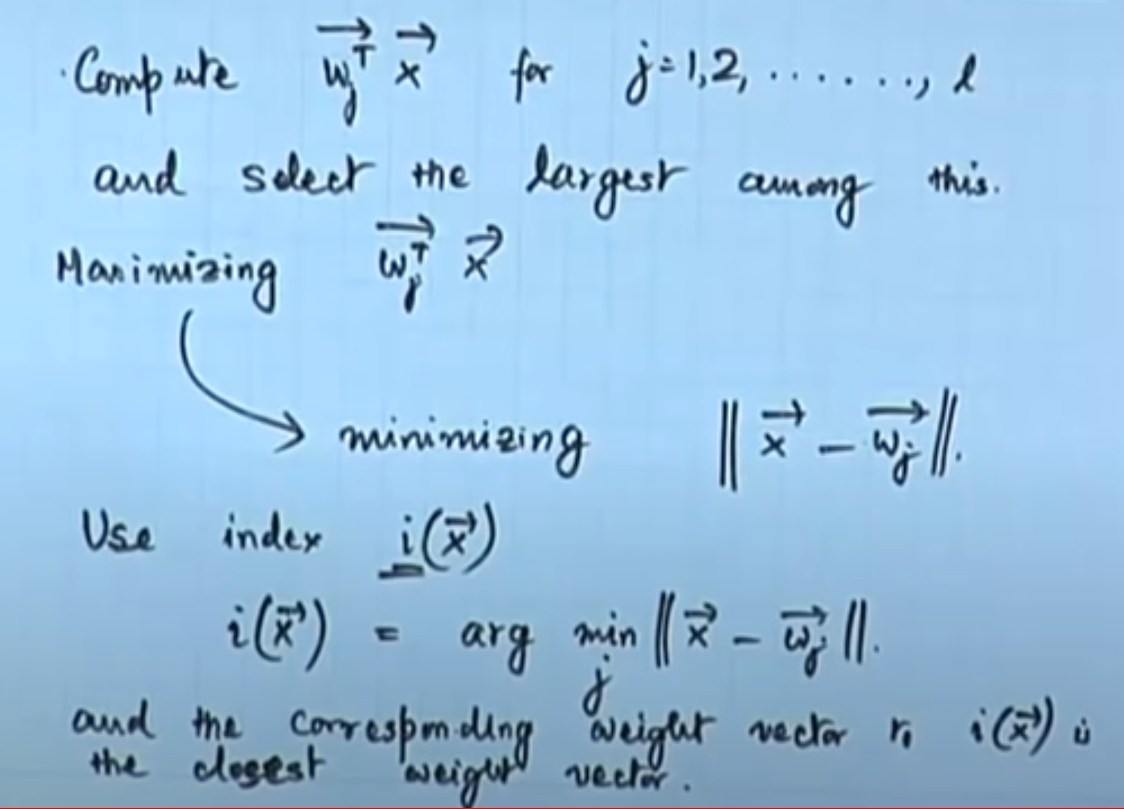 Compute w_j^T x for j=1,2, ......., l
and select the largest among this.
Maximizing w_j^T x
minimizing || x - w_j ||.
Use index i(x)
i(x) = arg min_j || x - w_j ||.
and the corresponding weight vector to i(x) is
the closest weight vector.